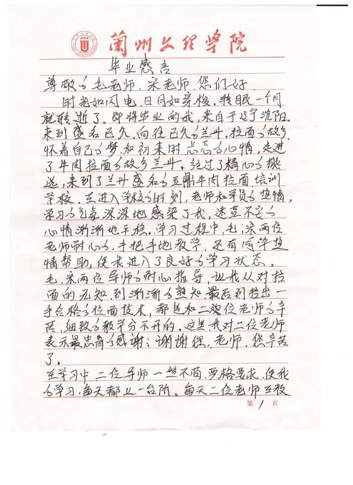 兰州文理学院
毕业感言
尊敬的毛老师、梁老师、您们好
时光如闪电、日月如穿梭、转眼一个月
就转逝了。即将毕业的我、来自于辽宁沈阳
来到盛名已久、向往已久的兰州、拉面的故乡
怀着自己的梦和初来时忐忑的心情、走进
了牛肉拉面的故乡兰州。经过了精心的挑
选、来到了兰州盛名的五鼎牛肉拉面培训
学校、在进入学校的时刻、老师和学员的热情、
学习的气氛深深地感染了我、迷茫不安的
心情渐渐地平稳。学习过程中毛、梁两位
老师耐心的、手把手地教学、还有同学热
情帮助、使我进入了良好的学习状态。
毛、梁两位导师的耐心指导、让我从对拉
面的无知到渐渐的熟知、最后到拉出一
手合格的拉面技术、都是和二位老师的辛
苦、细致的教学分不开的、这里我对二位老师
表示最崇高的感谢：谢谢您、老师、您辛苦
了。
在学习中二位导师一丝不苟、严格要求、使我
的学习、每天都上一台阶、每天二位老师在教
第 1 页